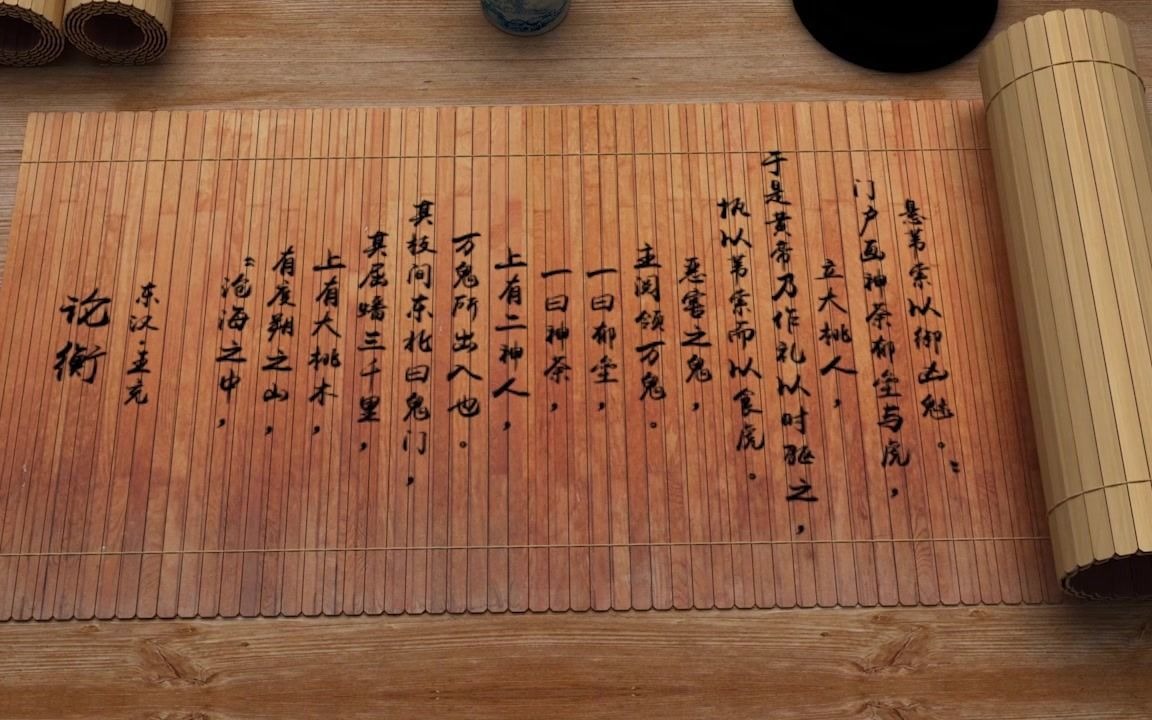 论衡
东汉·王充
“沧海之中，
有度朔之山，
上有大桃木，
其屈蟠三千里，
其枝间东北曰鬼门，
万鬼所出入也。
上有二神人，
一曰神荼，
一曰郁垒，
主阅领万鬼。
恶害之鬼，
执以苇索而以食虎。
于是黄帝乃作礼以时驱之，
立大桃人，
门户画神荼郁垒与虎，
悬苇索以御凶魅。”